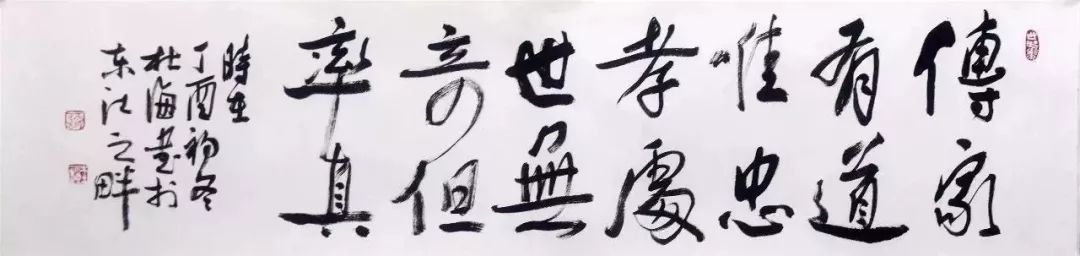 傳家
有道
唯忠
孝處
世無
奇但
率真
時在
丁酉初冬
杜海書於
东江之畔